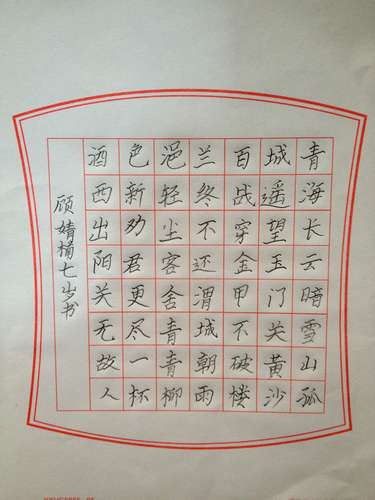 青海长云暗雪山孤
城遥望玉门关黄沙
百战穿金甲不破楼
兰终不还渭城朝雨
浥轻尘客舍青青柳
色新劝君更尽一杯
酒西出阳关无故人
顾婧楠七岁书